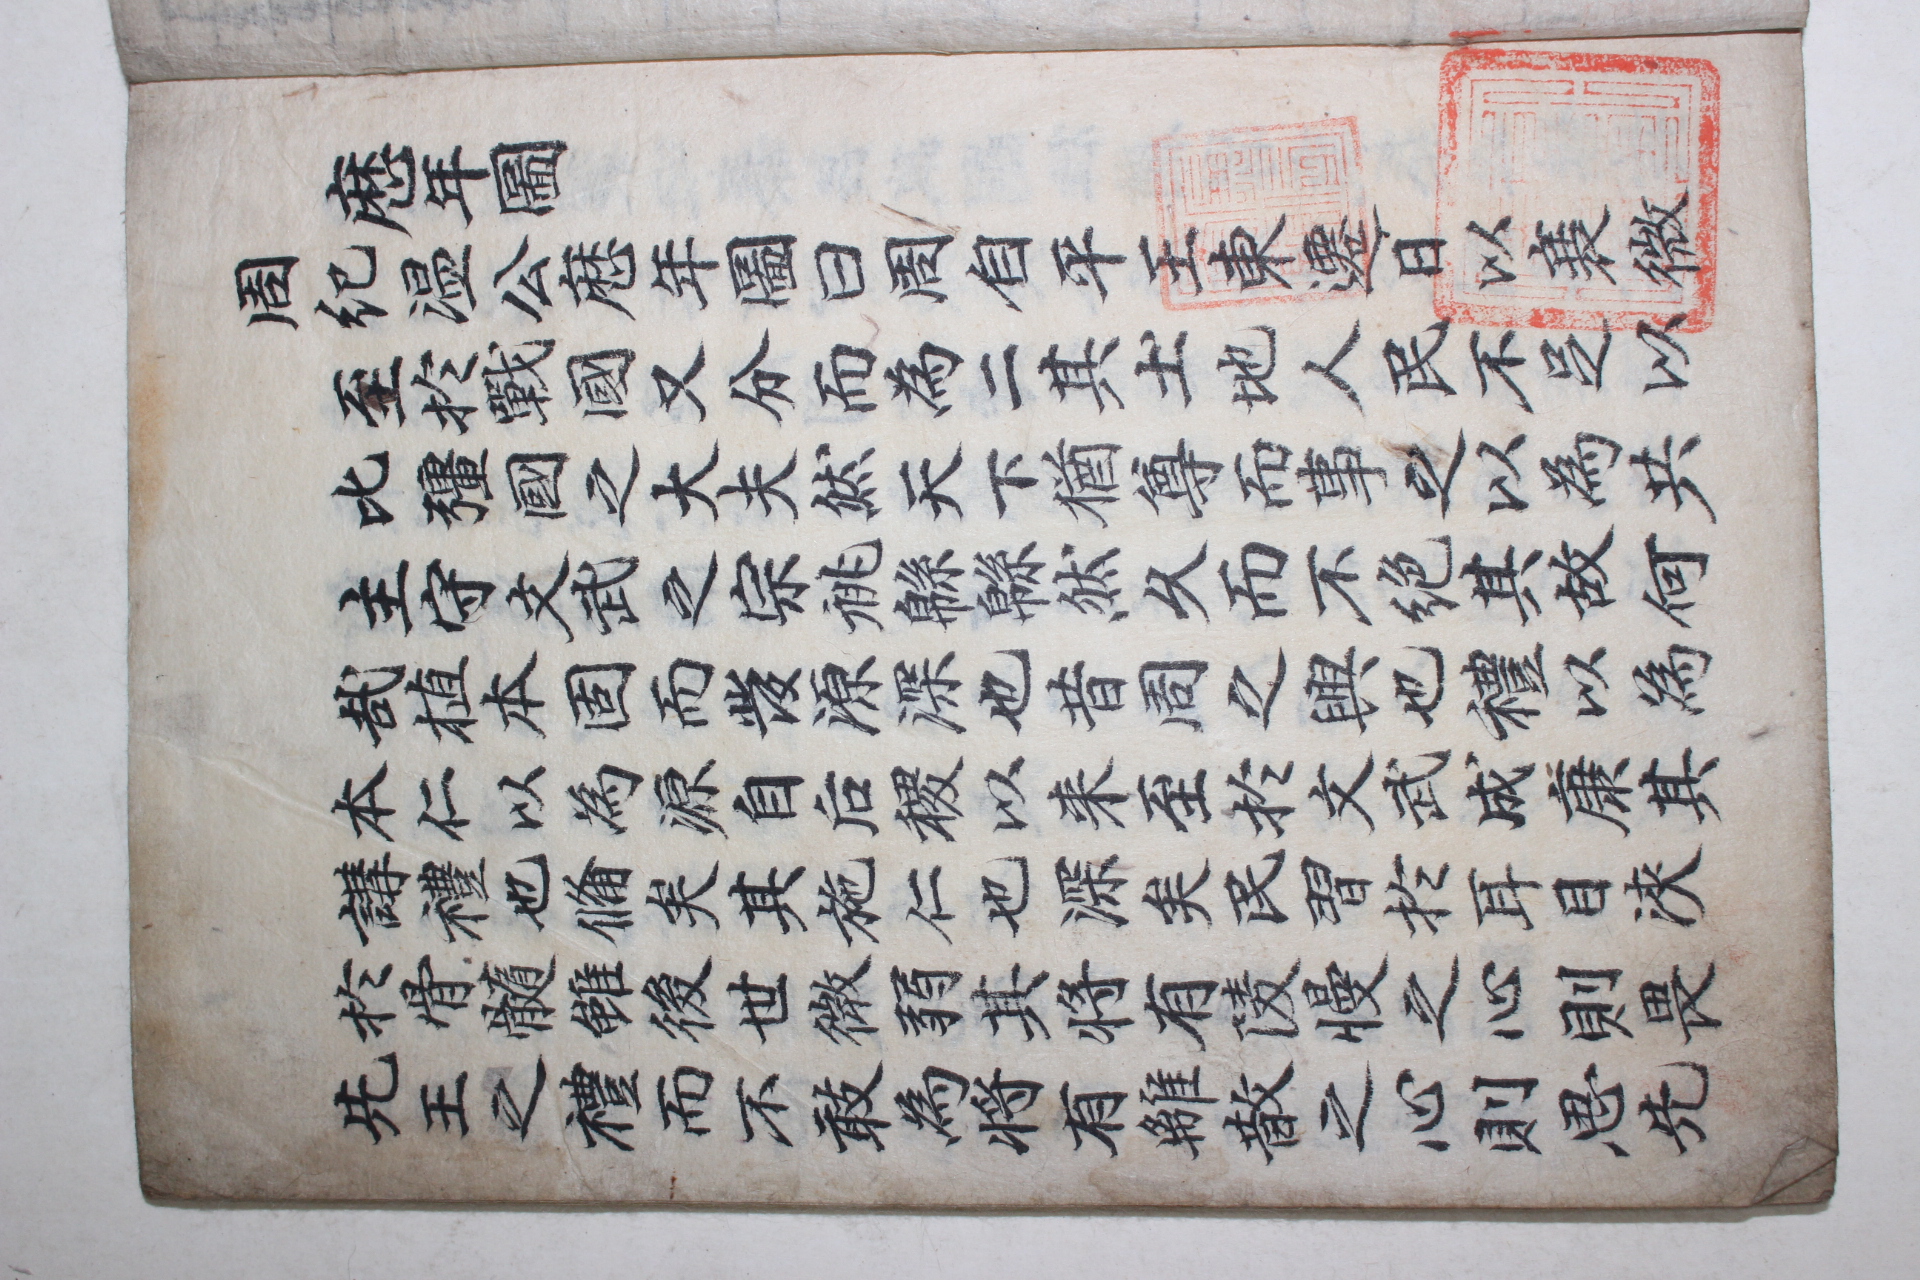 歷年圖
周紀溫公歷年圖曰周自平王東遷日以衰微
至於戰國又分而為二其土地人民不足以
比彊國之大夫然天下猶尊而事之以為共
主守文武之宗祧緜緜然久而不絕其故何
哉植本固而發源深也昔周之興也禮以為
本仁以為源自后稷以来至於文武成康其
講禮也備矣其施仁也深矣民習於耳目浹
於骨髓雖後世微弱其將有陵慢之心則畏
先王之禮而不敢為將有離散之心則思先